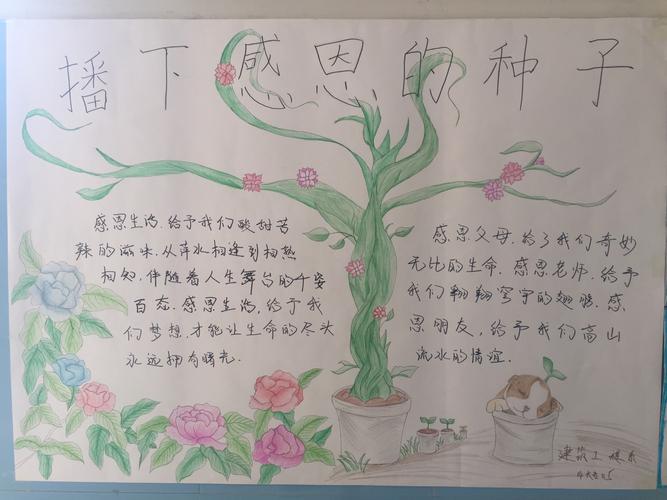 播下感恩的种子
感恩生活.给予我们酸甜苦
辣的滋味.从萍水相逢到相熟
相知.伴随着人生舞台的千姿
百态.感恩生活,给予我
们梦想,才能让生命的尽头
永远拥有曙光.
感恩父母.给了我们奇妙
无比的生命.感恩老师.给予
我们翱翔空宇的翅膀.感
恩朋友,给予我们高山
流水的情谊.
建筑工程系